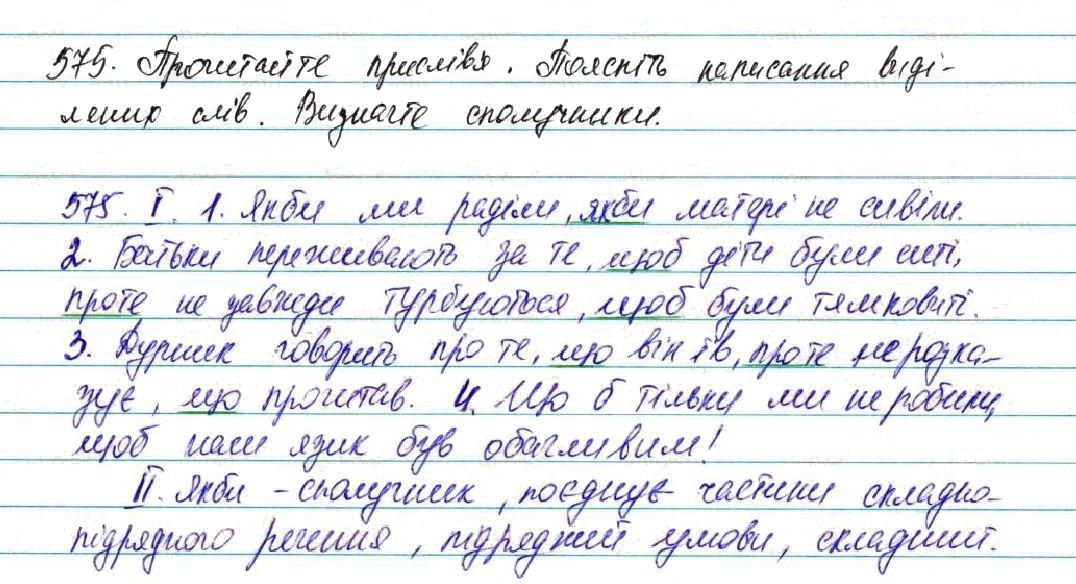 575. Прочитайте прислівя. Поясніть написання виді-
лених слів. Визначте сполучники.
575. I. 1. Якби ми раділи, якби матері не сивіли.
2. Батьки переживають за те, щоб діти були ситі,
проте не завжди турбуються, щоб були тямковиті.
3. Дурник говорить про те, що він їв, проте не розка-
зує, що прочитав. 4. Що б тільки ми не робили,
щоб наш язик був обачливим!
II. Якби - сполучник, поєднує частини складно-
підрядного речення, підрядний умови, складний.